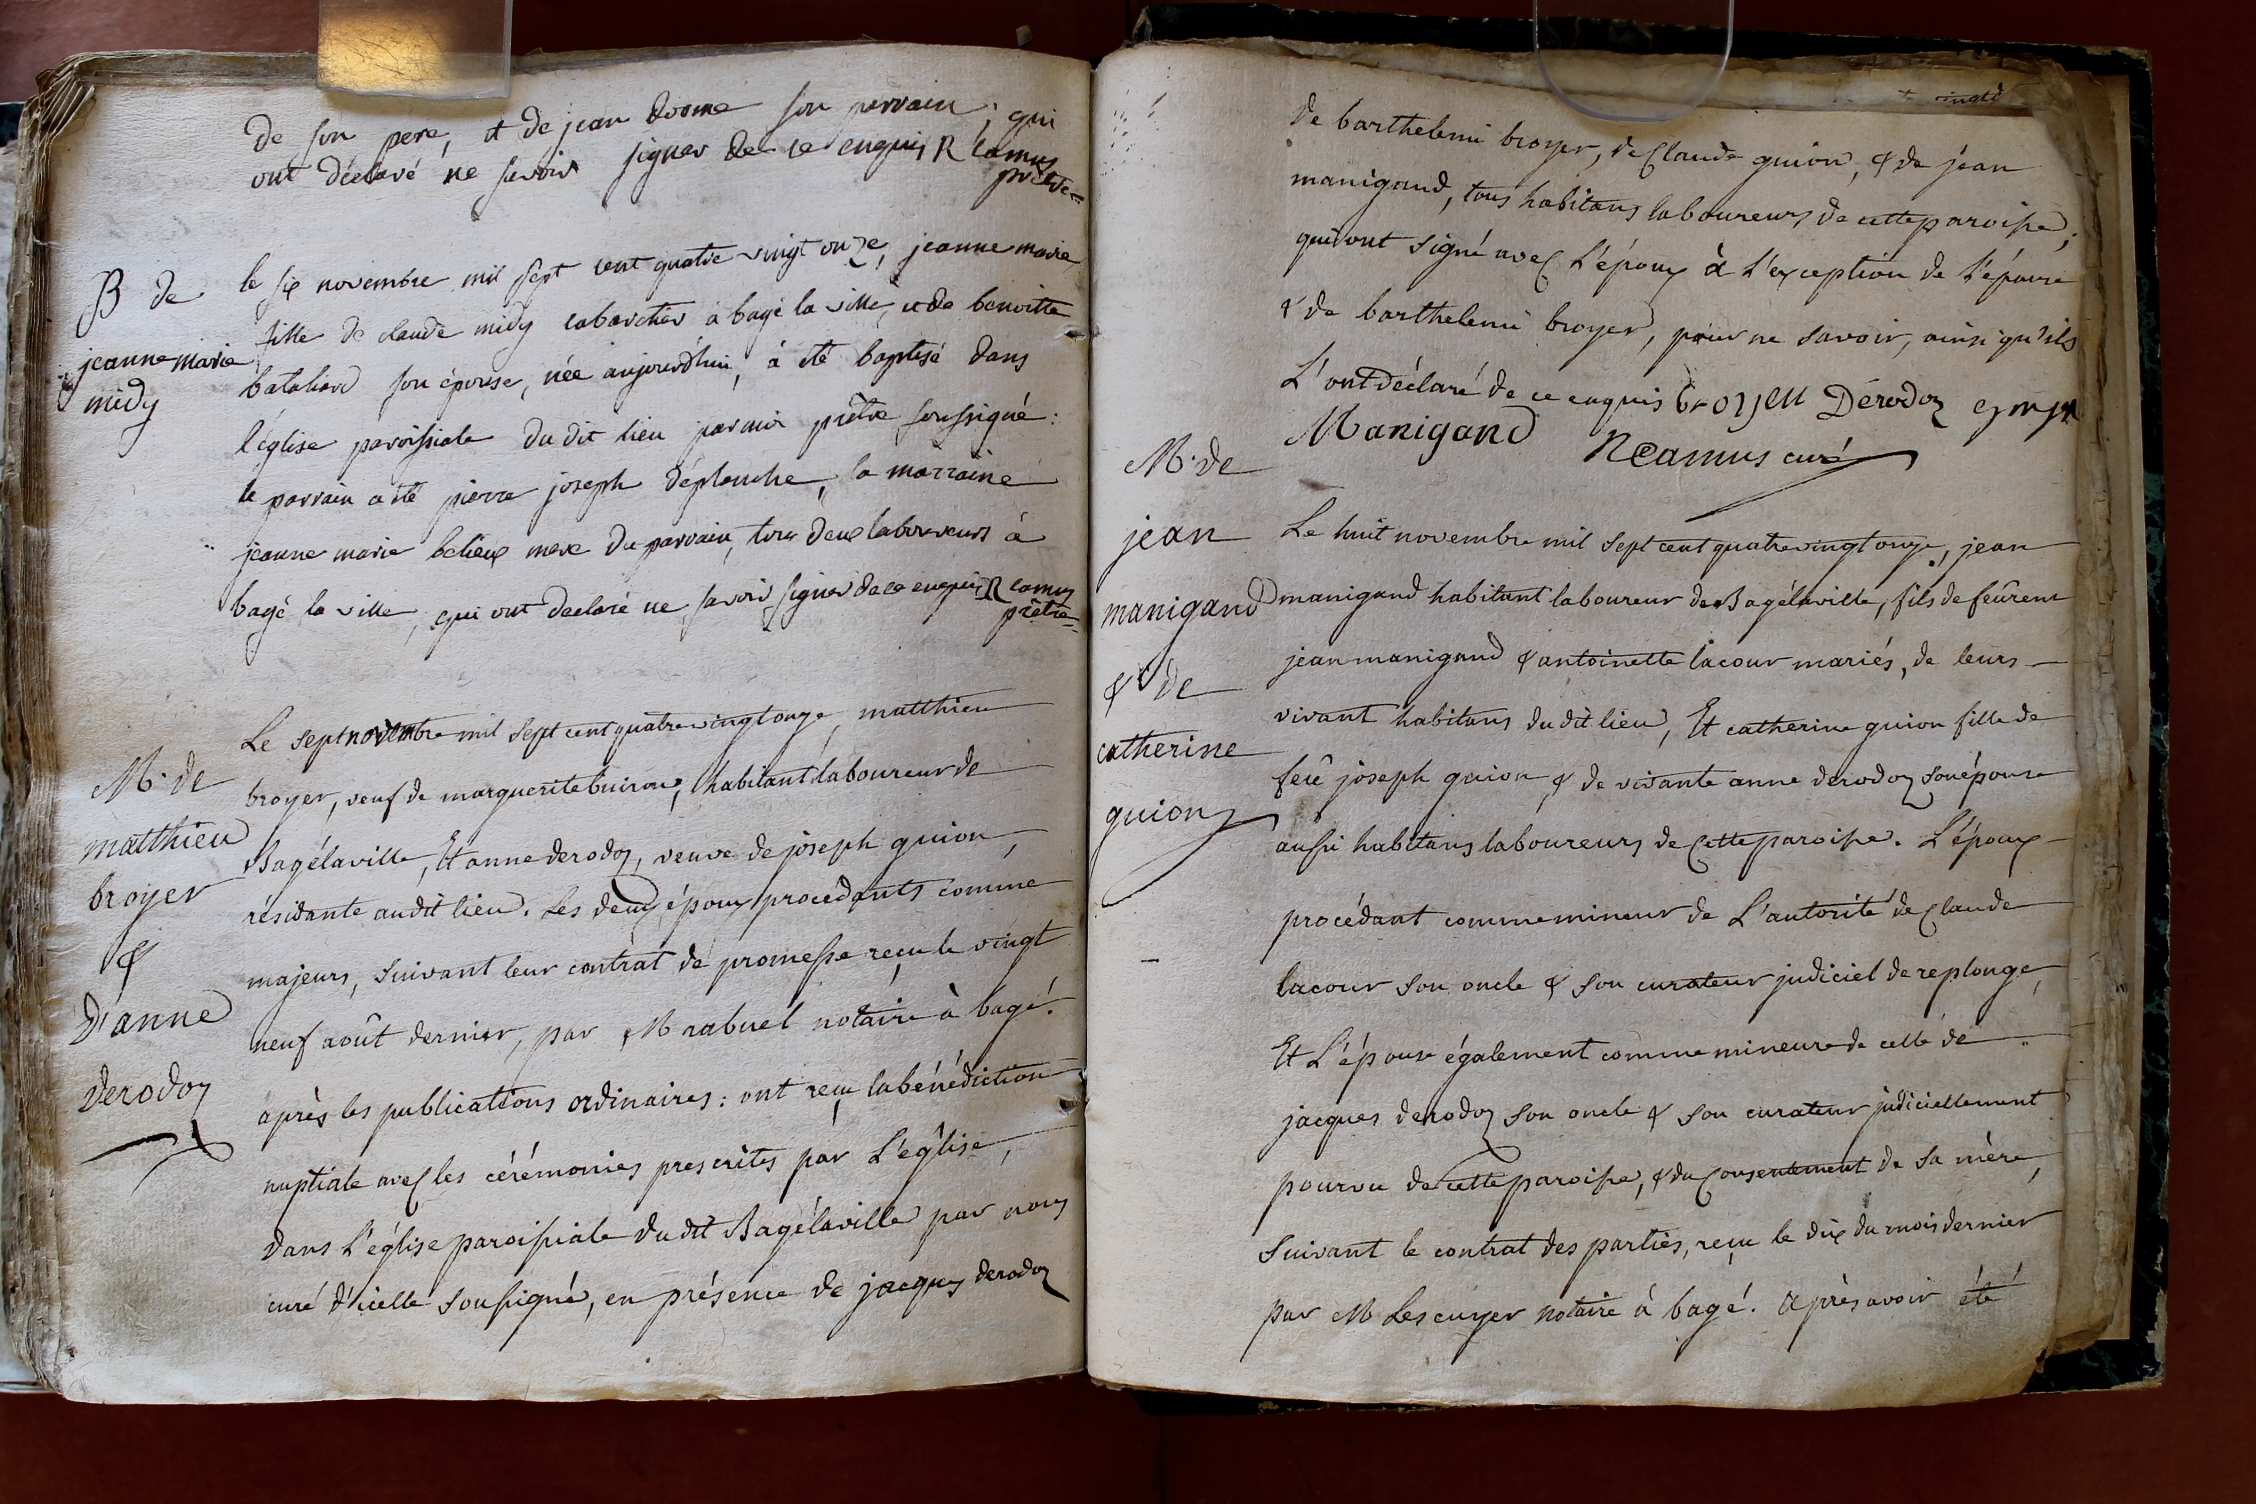 de son pere, et de jean dorme son parrain, qui
ont déclaré ne savoir signer de ce enquis R Camus
prêtre
B de
jeanne marie
midy
le six novembre mil sept cent quatre vingt onze, jeanne marie
fille de claude midy cabaretier à bagé la ville, et de benoitte
bataliard son épouse, née aujourd'hui, à été baptisé dans
l'église paroissiale du dit lieu par moi prêtre soussigné:
le parrain a été pierre joseph déplanche, la marraine
jeanne marie belieux mere du parrain, tous deux laboureurs à
bagé la ville, qui ont declaré ne savoir signer de ce enquis R Camus
prêtre
M. de
matthieu
broyer
&
d'anne
derodoz
Le sept novembre mil sept cent quatre vingt onze, matthieu
broyer, veuf de marguerite buiron, habitant laboureur de
Bagélaville, Et anne derodoz, veuve de joseph guion,
résidante audit lieu. Les deux époux procédants comme
majeurs, suivant leur contrat de promesse reçu le vingt
neuf août dernier, par M rabuel notaire à bagé.
après les publications ordinaires: ont reçu la bénédiction
nuptiale avec les cérémonies prescrites par L'église,
dans L'église paroissiale du dit Bagélaville par nous
curé d'icelle soussigné, en présence de jacques derodoz
de barthelemi broyer, de Claude guion, & de jean
manigand, tous habitans laboureurs de cette paroisse;
qui ont signé avec L'époux à L'exception de L'épouse
& de barthelemi broyer, pour ne savoir, ainsi qu'ils
L'ont déclaré de ce enquis broyer Dérodoz
Manigand R Camus curé
M. de
jean
manigand
& de
catherine
guion
Le huit novembre mil sept cent quatre vingt onze, jean
manigand habitant laboureur de Bagélaville, fils de feûrent
jean manigand & antoinette lacour mariés, de leurs
vivant habitans du dit lieu, Et catherine guion fille de
feû joseph guion & de vivante anne derodoz son épouse
aussi habitans laboureurs de Cette paroisse. L'époux
procédant comme mineur de L'autorité de Claude
lacour son oncle & son curateur judiciel de replonge,
Et L'épouse également comme mineure de celle de
jacques derodoz son oncle & son curateur judiciellement
pourvu de cette paroisse, & du Consentement de sa mère,
suivant le contrat des parties, reçu le dix du mois dernier
par M Lescuyer notaire à bagé. après avoir été